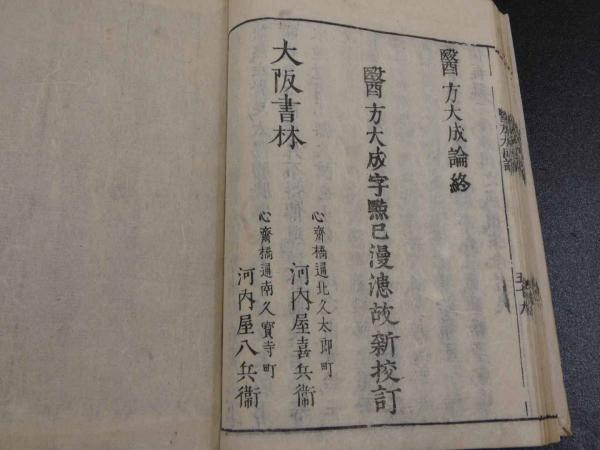 醫方大成論
醫方大成論終
醫方大成字㸃已漫漶故新挍訂
大阪書林
心齋橋通北久太郎町
河内屋喜兵衞
心齋橋通南久寶寺町
河内屋八兵衞